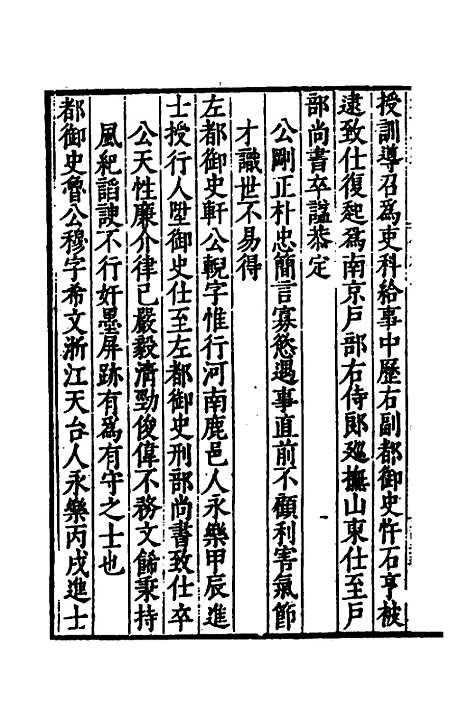 授訓導召爲吏科給事中歷右副都御史忤石亨被
逮致仕復起爲南京戶部右侍郎廵撫山東仕至戶
部尚書卒諡恭定
公剛正朴忠簡言寡慾遇事直前不顧利害氣節
才識世不易得
左都御史軒公輗字惟行河南鹿邑人永樂甲辰進
士授行人陞御史仕至左都御史刑部尚書致仕卒
公天性廉介律己嚴毅清勁俊偉不務文飾秉持
風紀謟諛不行奸墨屏跡有爲有守之士也
都御史魯公穆字希文浙江天台人永樂丙戌進士